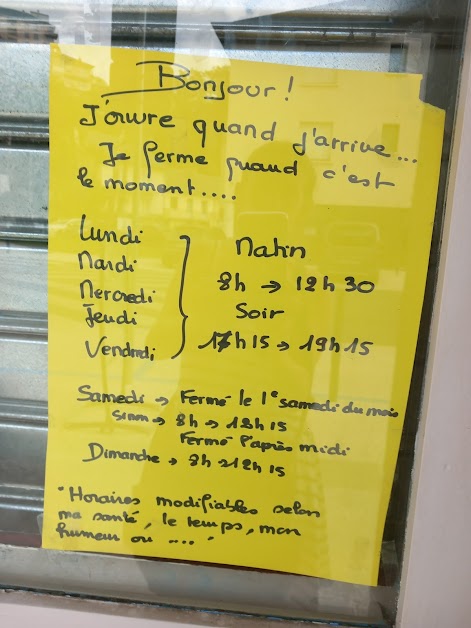 Bonjour !
J'ouvre quand j'arrive...
Je ferme quand c'est
le moment....
Lundi
Mardi
Mercredi
Jeudi
Vendredi
Matin
8h → 12h30
Soir
17h15 → 19h15
Samedi → Fermé le 1e samedi du mois
sinon → 8h → 12h15
Fermé l'après midi
Dimanche → 8h → 12h15
"Horaires modifiables selon
ma santé, le temps, mon
humeur ou .... "